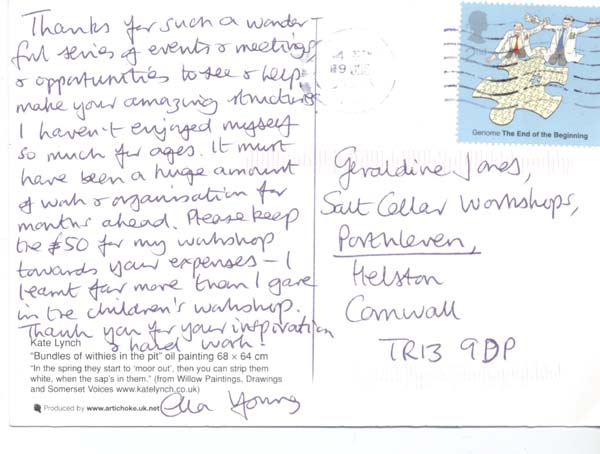 Thanks for such a wonder-
ful series of events & meetings
& opportunities to see & help
make your amazing structures
I haven't enjoyed myself
so much for ages. It must
have been a huge amount
of work & organisation for
months ahead. Please keep
the £50 for my workshop
towards your expenses – I
learnt far more than I gave
in the children's workshop.
Thank you for your inspiration
& hard work!
Ella Young
Kate Lynch
"Bundles of withies in the pit" oil painting 68 x 64 cm
"In the spring they start to 'moor out', then you can strip them
white, when the sap's in them." (from Willow Paintings, Drawings
and Somerset Voices www.katelynch.co.uk)
Produced by www.artichoke.uk.net
Genome The End of the Beginning
Geraldine Jones,
Salt Cellar Workshops,
Porthleven,
Helston
Cornwall
TR13 9DP